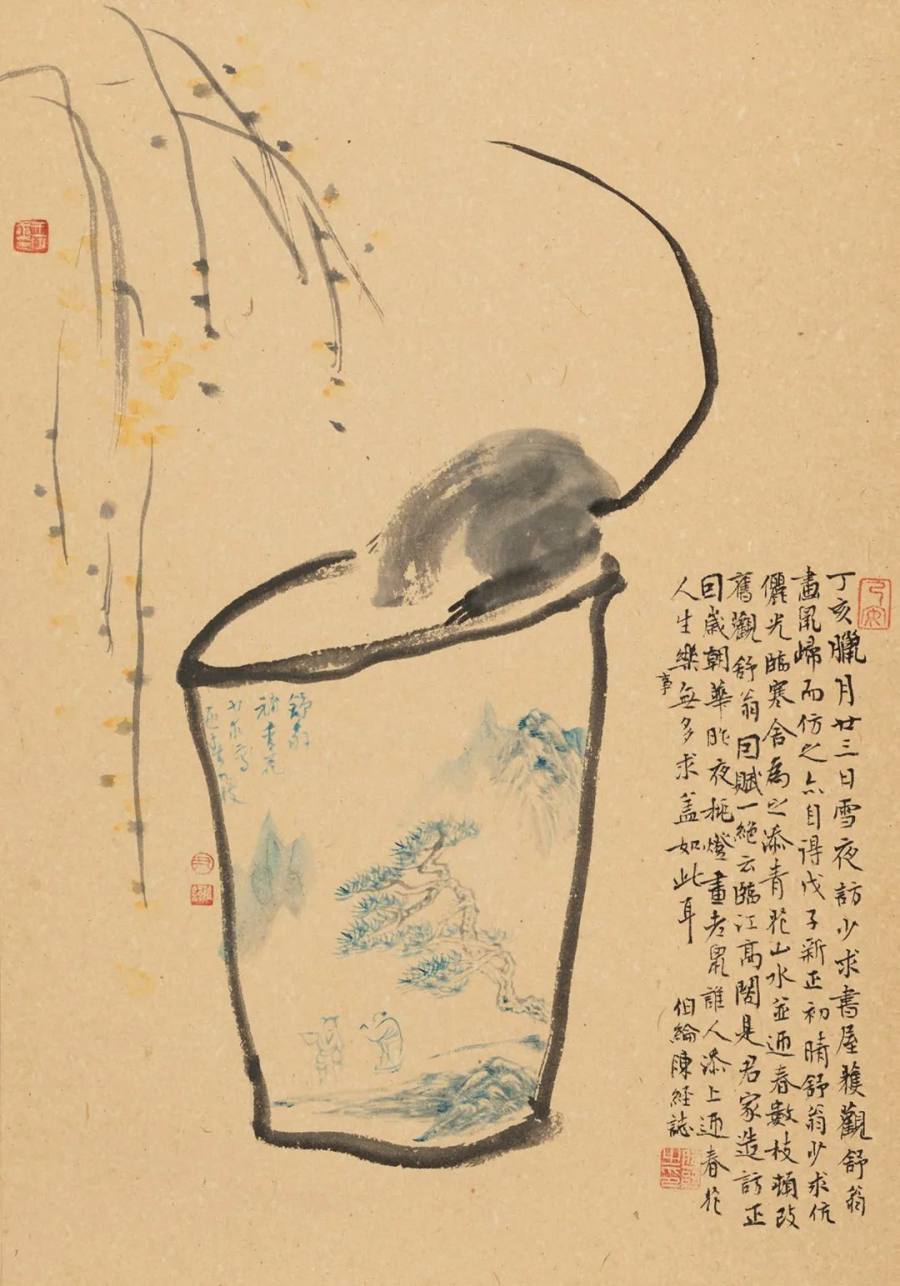 丁亥臘月廿三日雪夜訪少求書屋獲觀舒翁
畫鼠歸而仿之亦自得戊子新正初晴舒翁少求伉
儷光臨寒舍為之添青花山水並迎春數枝頓改
舊觀舒翁因賦一絕云臨江高閣是君家造訪正
因歲朝華昨夜挑燈畫老鼠誰人添上迎春花
人生樂事無多求蓋如此耳
伯綸陳經誌
舒翁
補青花
少求寫
迎春